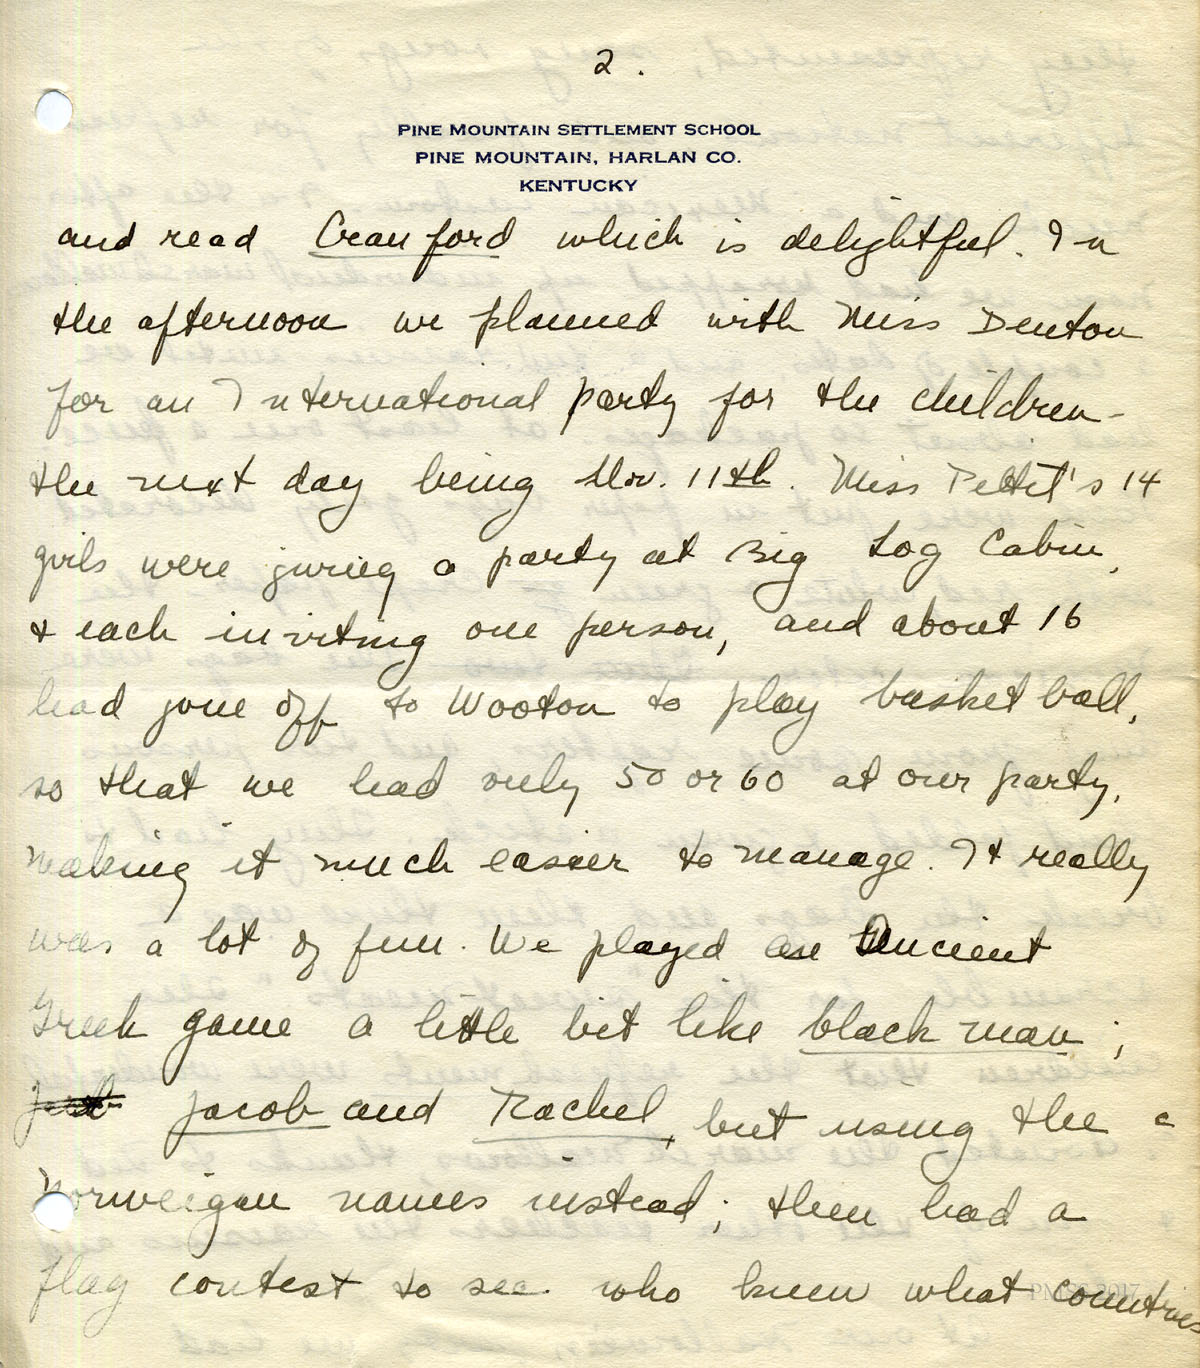 2.
PINE MOUNTAIN SETTLEMENT SCHOOL
PINE MOUNTAIN, HARLAN CO.
KENTUCKY
and read Cranford which is delightful. In
the afternoon we planned with Miss Denton
for an International party for the children-
the next day being Nov. 11th. Miss Pettit's 14
girls were giving a party at Big Log Cabin,
& each inviting one person, and about 16
had gone off to Wooton to play basket ball,
so that we had only 50 or 60 at our party,
making it much easier to manage. It really
was a lot of fun. We played an Ancient
Greek game a little bit like black man;
Jacob and Rachel, but using the
Norweigan names instead; then had a
flag contest to see who knew what countries
PMSS 2017